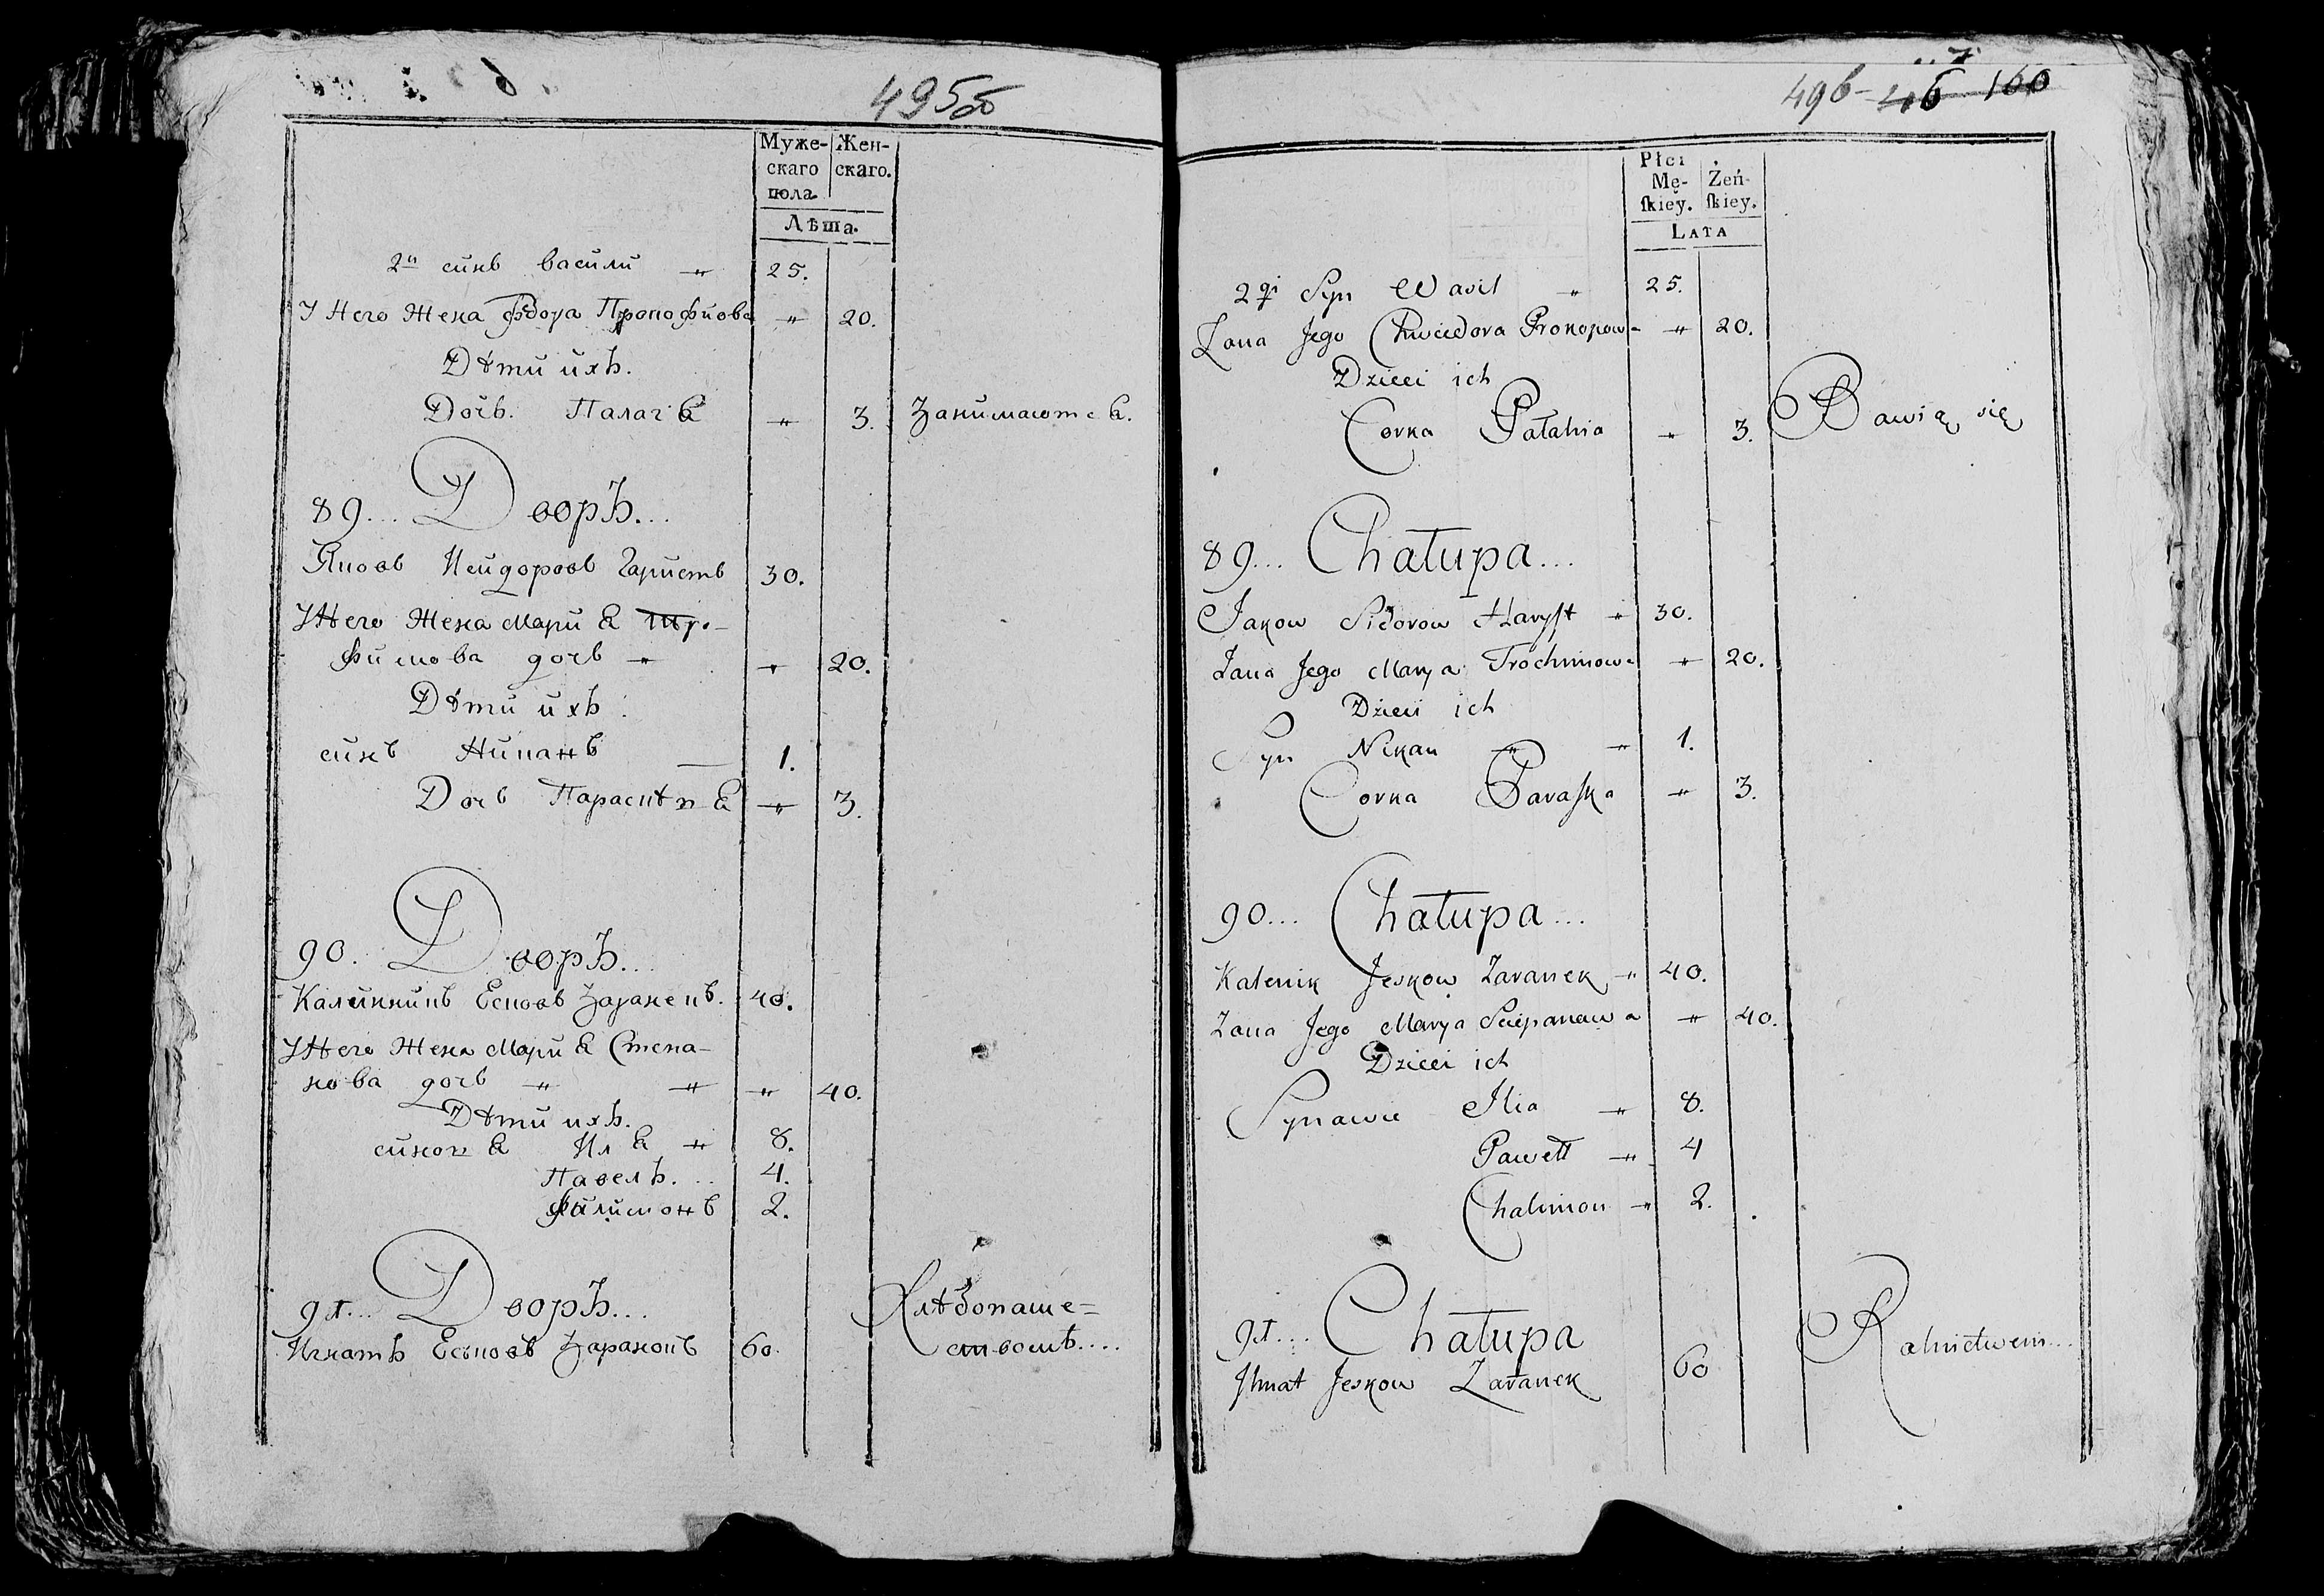 495об
Муже- Жен-
скаго скаго.
пола.
Лѣта.
2й синь васили " 25.
У Него Жена Федора Прокофиова " 20.
Дѣти ихъ.
Дочь. Палагѣя " 3. Занимаютсѣя.
89... Дворъ...
Якось Исидоровь Гаристь 30.
У Него Жена Мария Тро-
фимова дочь " " 20.
Дѣти ихъ.
синь Никань 1.
Дочь " 3.
90. Дворъ...
Калинникь Еськовь Заранекь. 40.
У Него Жена Мария Степа-
нова дочь " " " 40.
Дѣти ихъ.
Илья " 8.
Павелъ... 4.
Филимонь 2.
91... Дворъ... Хлѣбопаше=
Игнатъ Еськовь Зараконь 60. ством....
496 - 46 160
Płci
Mę- Żeń-
ſkiey. ſkiey.
LATA
2gi Syn Wasil " 25.
Żana Jego Chwiedora Prokopowa " 20.
Dzieci ich
Corka Pałahia " 3. Bawią się
89... Chałupa...
Jakow Sidorow Haryſt " 30.
Żana Jego Marya Trochimowa " 20.
Dzieci ich
Syn Nikan " " 1.
Corka Paraſka " 3.
90... Chałupa...
Kalenik Jeskow Zaranek " 40.
Żana Jego Marya Sciepanawa " 40.
Dzieci ich
Synawie Ilia " 8.
Pawełł " 4
Chalimon " 2.
91... Chałupa Rolnictwem...
Ihnat Jeskow Zaranek 60